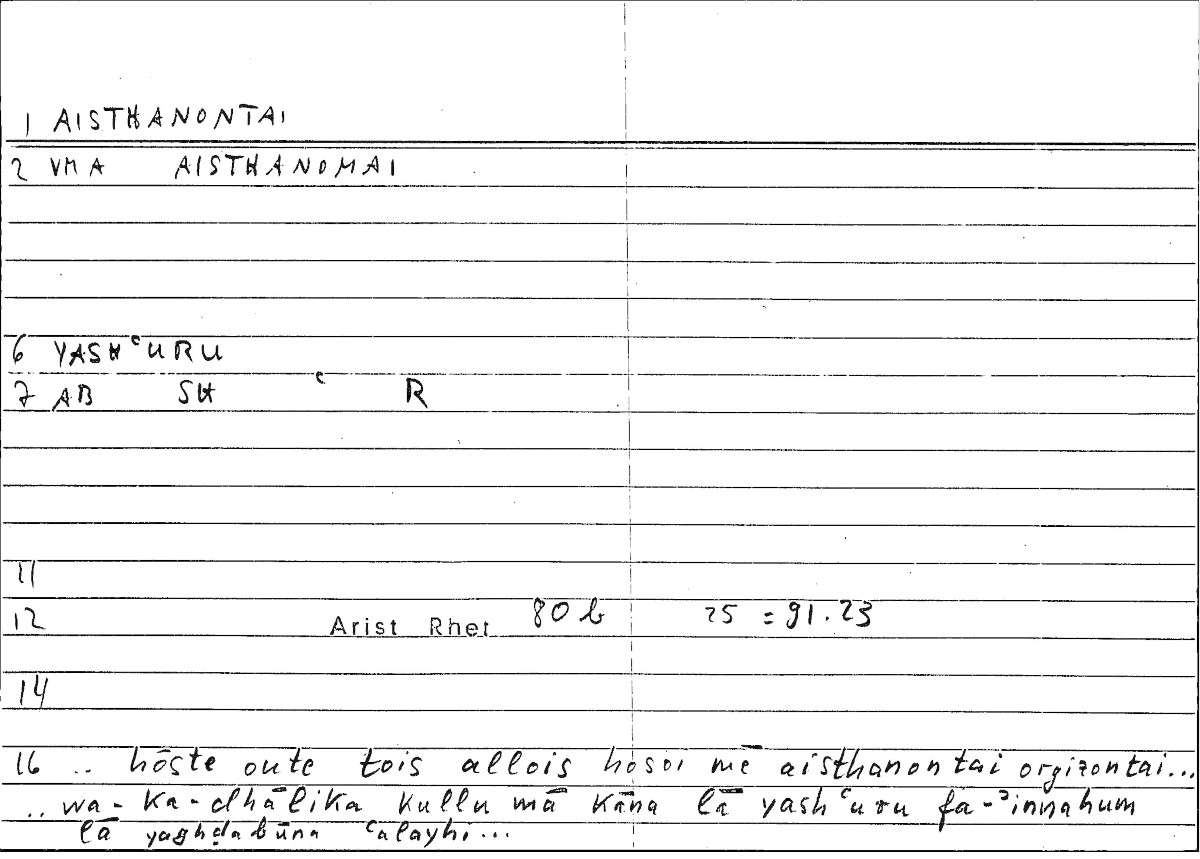 1 AISTHANONTAI
2 VMA AISTHANOMAI
6 YASHʿURU
7 AB SH ʿ R
11
12 Arist Rhet 80b 25 = 91.23
14
16 .. hōste oute tois allois hosoi mē aisthanontai orgizontai...
.. wa-ka-dhālika kullu mā kāna lā yashʿuru fa-ʾinnahum
lā yaghḍabūna ʿalayhi...